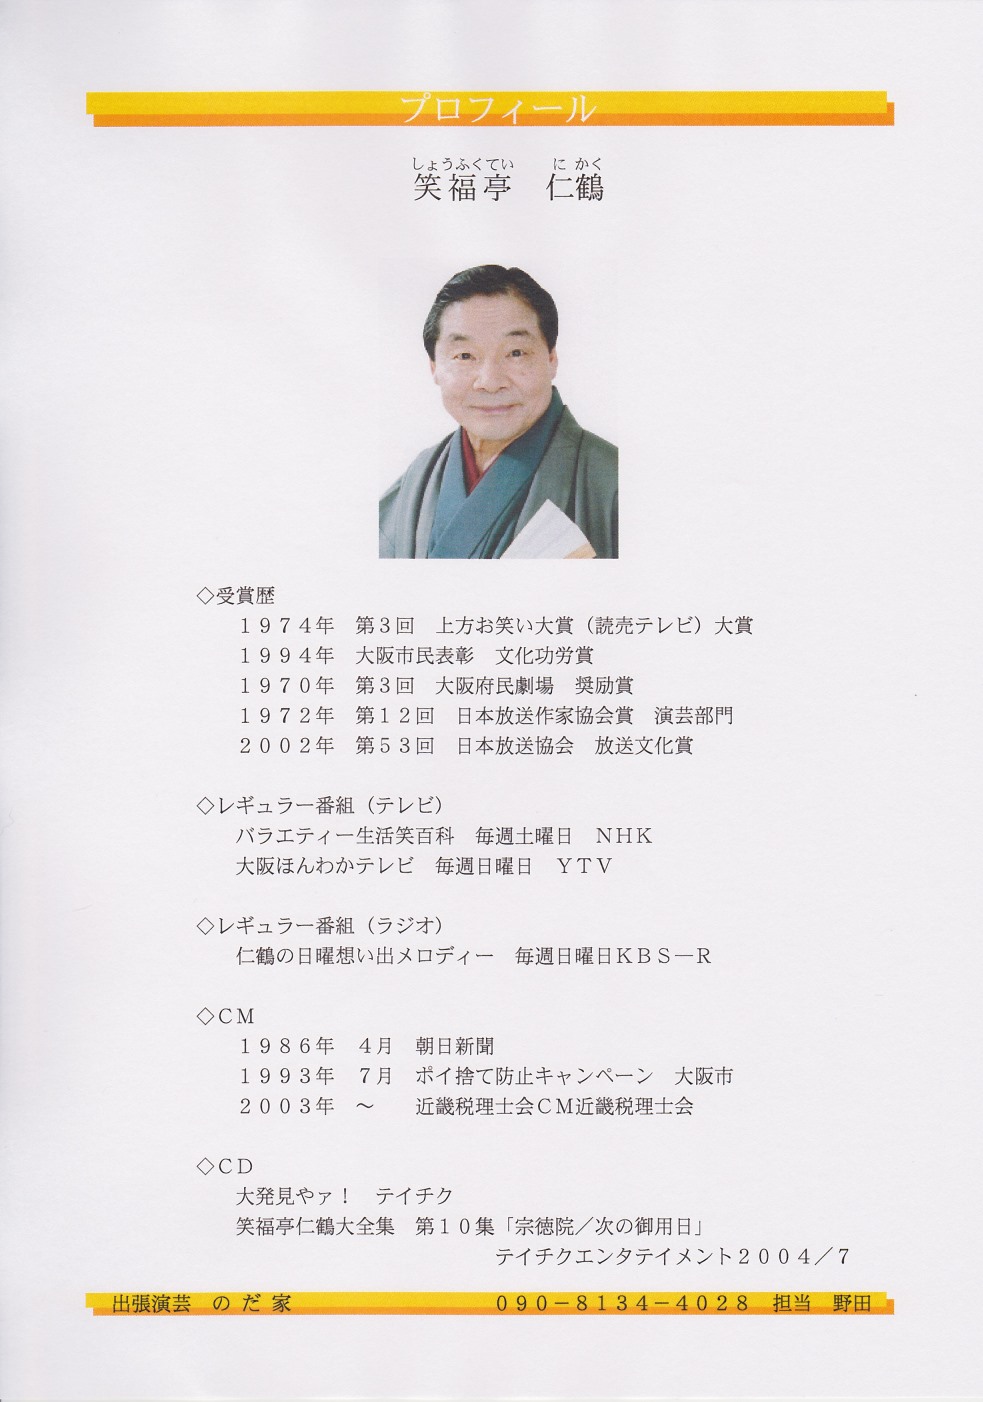 プロフィール
しょうふくてい　にかく
笑福亭　仁鶴
◇受賞歴
１９７４年　第３回　上方お笑い大賞（読売テレビ）大賞
１９９４年　大阪市民表彰　文化功労賞
１９７０年　第３回　大阪府民劇場　奨励賞
１９７２年　第１２回　日本放送作家協会賞　演芸部門
２００２年　第５３回　日本放送協会　放送文化賞
◇レギュラー番組（テレビ）
バラエティー生活笑百科　毎週土曜日　ＮＨＫ
大阪ほんわかテレビ　毎週日曜日　ＹＴＶ
◇レギュラー番組（ラジオ）
仁鶴の日曜想い出メロディー　毎週日曜日ＫＢＳ―Ｒ
◇ＣＭ
１９８６年　４月　朝日新聞
１９９３年　７月　ポイ捨て防止キャンペーン　大阪市
２００３年　～　　近畿税理士会ＣＭ近畿税理士会
◇ＣＤ
大発見やァ！　テイチク
笑福亭仁鶴大全集　第１０集「宗徳院／次の御用日」
テイチクエンタテイメント２００４／７
出張演芸　の だ 家　０９０－８１３４－４０２８　担当　野田